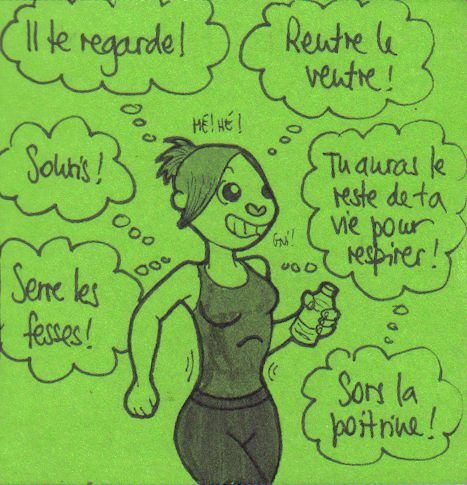 Il te regarde!
Rentre le
ventre!
HÉ! HÉ!
Souris!
Tu auras le
reste de ta
vie pour
respirer!
Gni!
Serre les
fesses!
Sors la
poitrine!